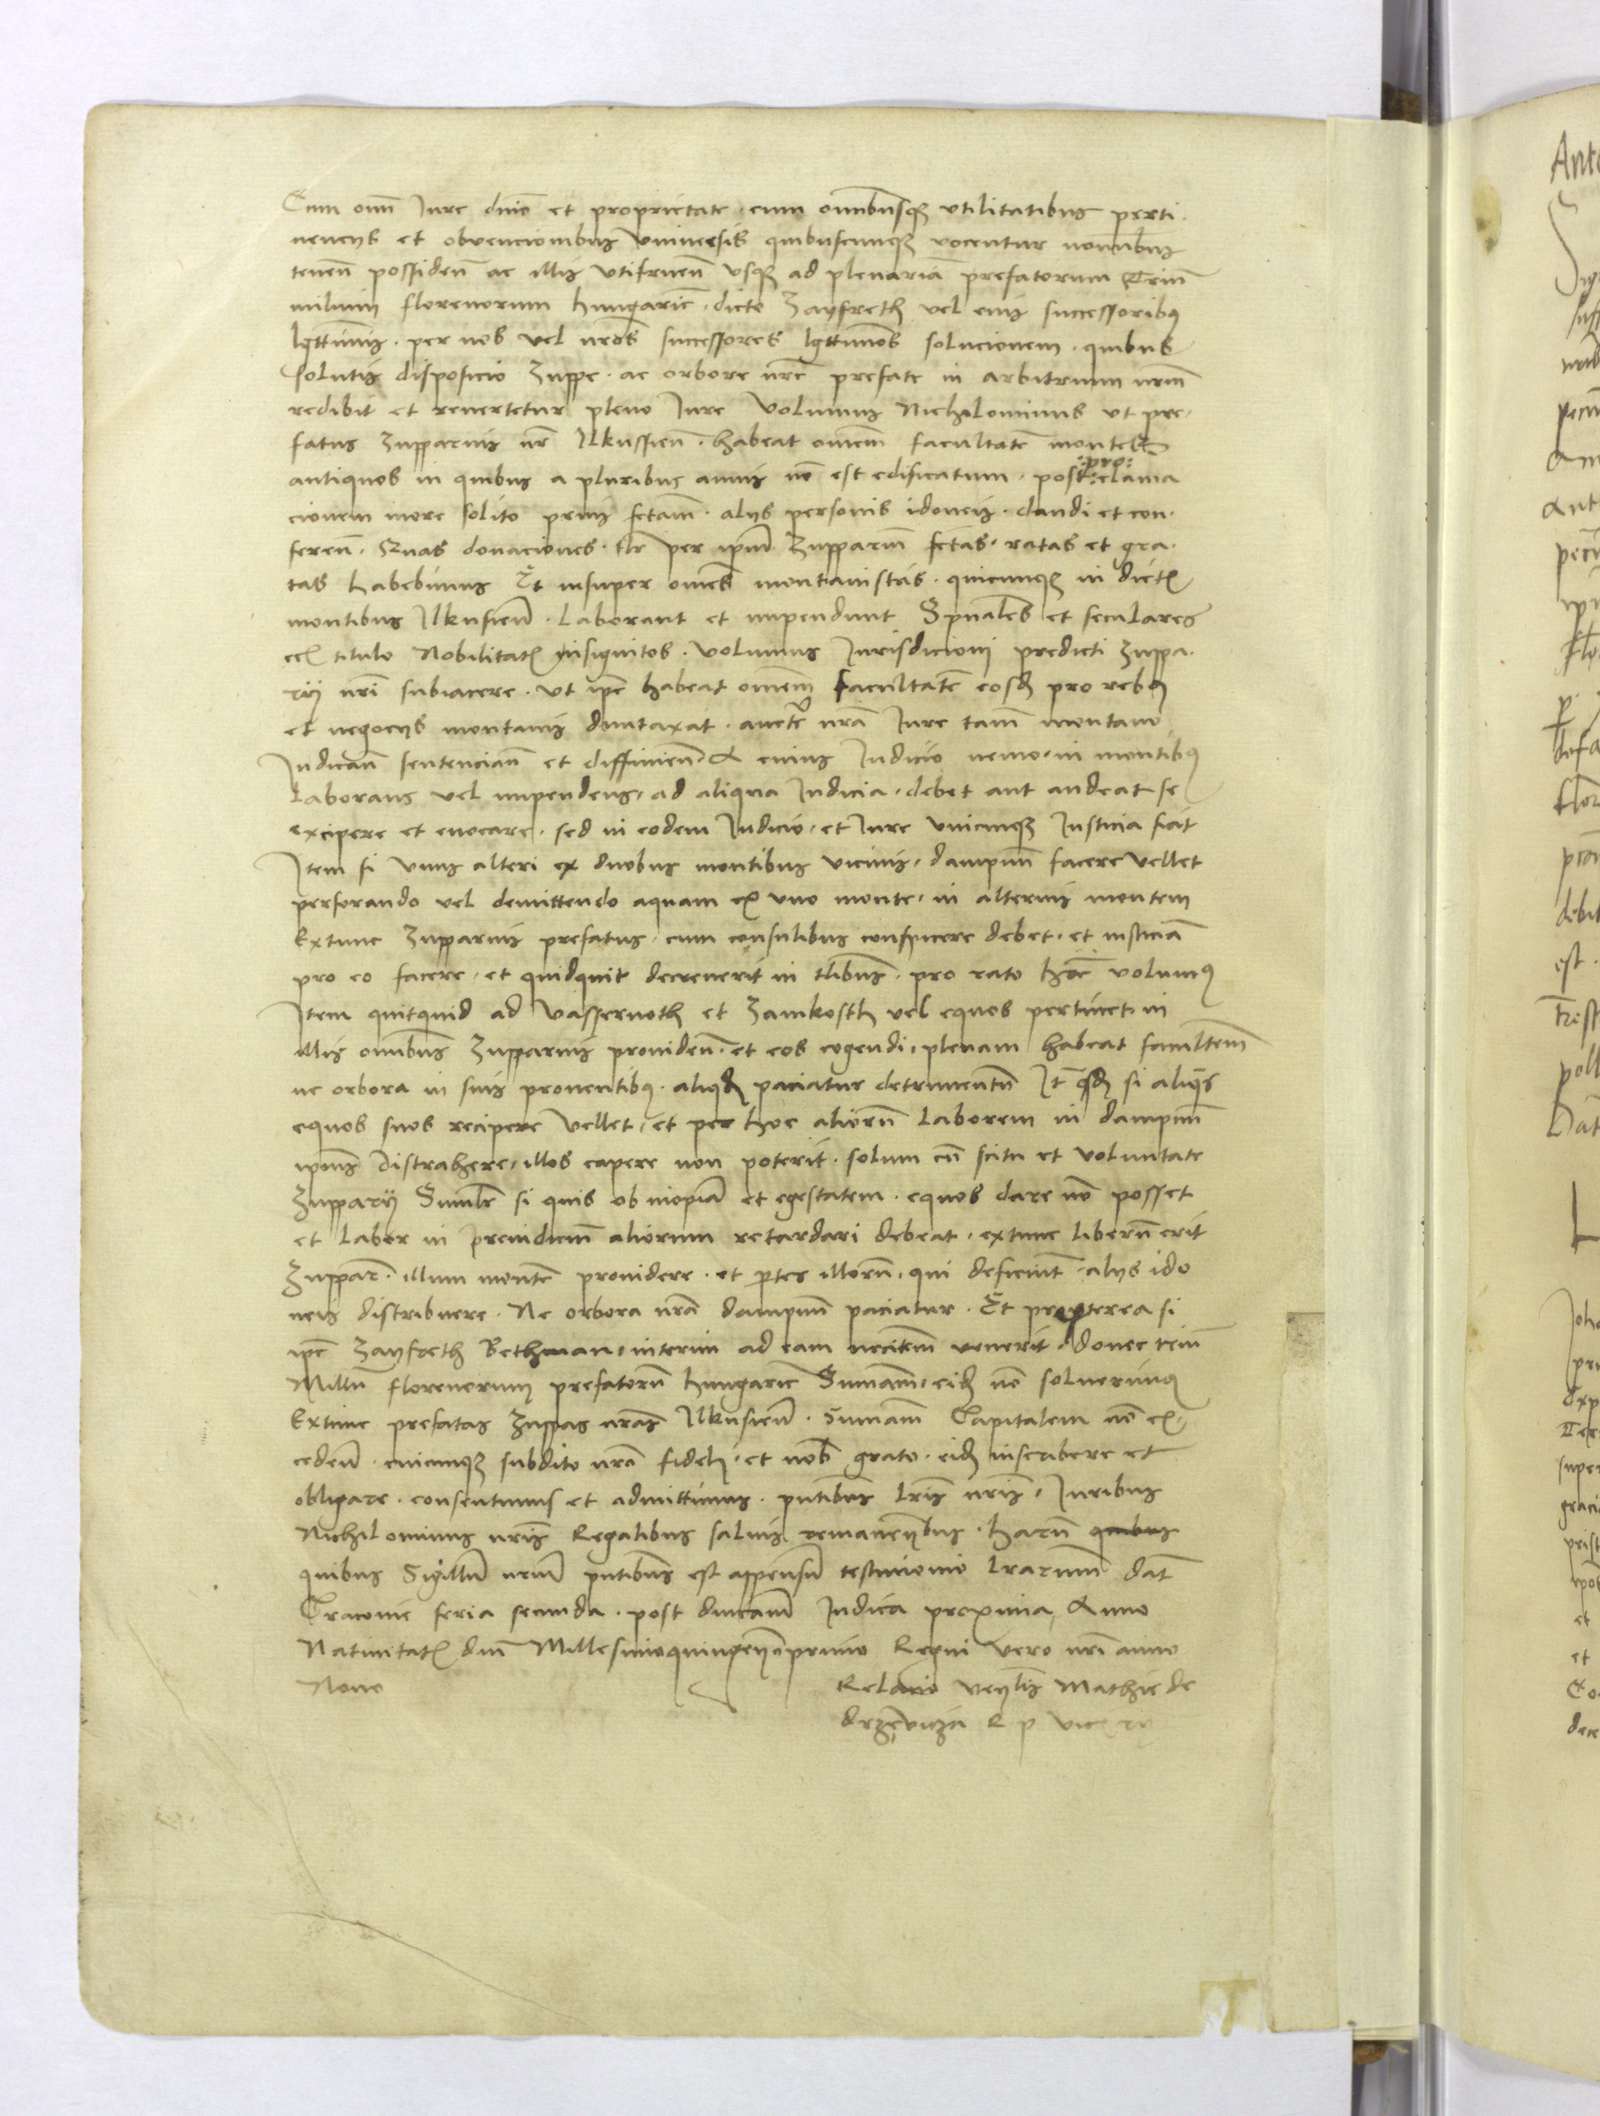 Cum omni Iure dnio et proprietate cum omnibusq3 vtilitatibus perti
nencys et obvencionibus vniuersis quibuscunq3 vocentur nominibus
tenen̄ possiden̄ ac illis vtifruen̄ vsq3 ad plenariā prefatorum Trium
milium florenorum hungaric̄ dicto Zayfreth vel eius successoribus
lgittimis per nos vel nr̄os successores lgittimos solucionem quibus
solutis disposicio Zuppe ac orbore nr̄e prefate in arbitrium nr̄m
redibit et reuertetur pleno Iure Volumus Nichilominus vt pre
fatus Zupparius nr̄ Ilkussien̄ habeat omnem facultatē montes
antiquos in quibus a pluribus annis nō est edificatum post :pro: clama
cionem more solito prius fctam̄ alys personis idoneis dandi et con
feren̄ Quas donaciones sic per ipm̄ Zupparm̄ fctas ratas et gra
tas habebimus Et insuper omnes montanistas quicunq3 in dictis
montibus Ilkusien̄ Laborant et impendunt Spūales et seculares
ec̄ titulo Nobilitatis insignitos volumus Iurisdicioni predicti Zuppa
rÿ nr̄i subiacere vt ip̄e habeat omnem facultatē eosd3 pro rebus
et negocys montanis dumtaxat aucte nr̄a Iure tam̄ montano
Iudican̄ sentencian̄ et diffinien̄ A cuius Iudicio nemo in montibus
Laborans vel impendens ad aliqua Iudicia debet aut audeat se
excipere et euocare sed in eodem Iudicio et Iure vnicuiq3 Iusticia fiat
Item si vnus alteri ex duobus montibus vicinis dampnum facere vellet
perforando vel demittendo aquam ex vno monte in alterius montem
Extunc Zupparius prefatus cum consulibus conspicere debet et iusticiā
pro eo facere et quidquit decreuerit in tlibus pro rato hōc volumus
Item quitquid ad vassernoth et Zamkosth vel equos pertinet in
illis omnibus Zupparius prouiden̄ et eos cogendi plenam habeat facultem̄
ne orbora in suis prouentibus aliqd3 paciatur detrimentū It̄ qd3 si aliq̄s
equos suos recipere vellet et per hoc aliorū Laborem in dampnū
ipsius distrahere illos capere non poterit solum cū scitu et voluntate
Zupparÿ Simile si quis ob inopiā et egestatem equos dare nō posset
et Labor in preiudicm̄ aliorum retardari debeat extunc liberū erit
Zuppar̄ illum montē prouidere et ptes illorū qui deficiunt alys ido
neis distribuere Ne orbora nr̄a dampnū paciatur Et propterea si
ip̄e Zayfreth Bethman interim ad eam necitem̄ venerit donec triū
Milliū florenorum prefatorū hungaric̄ Summam eid3 nō soluerimus
Extunc prefatas Zuppas nr̄as Ilkusien̄ summam Capitalem nō ex
ceden̄ cuicunq3 subdito nr̄o fideli et nob̄ grato eid3 inscribere et
obligare consentimus et admittimus pn̄tibus lr̄is nr̄is Iuribus
Nichilominus nr̄is Regalibus saluis remanentibus harū quibus
quibus Sigillū nr̄um pn̄tibus est appensū testimonio lr̄arum̄ dat̄
Cracouie feria secunda post dm̄cam̄ Iudica proxima Anno
Natiuitatis dn̄i Millesimoquingentesimoprimo Regni vero nr̄i anno
Nono Relacio ven̄lis Mathie de
drzewicza R p vice